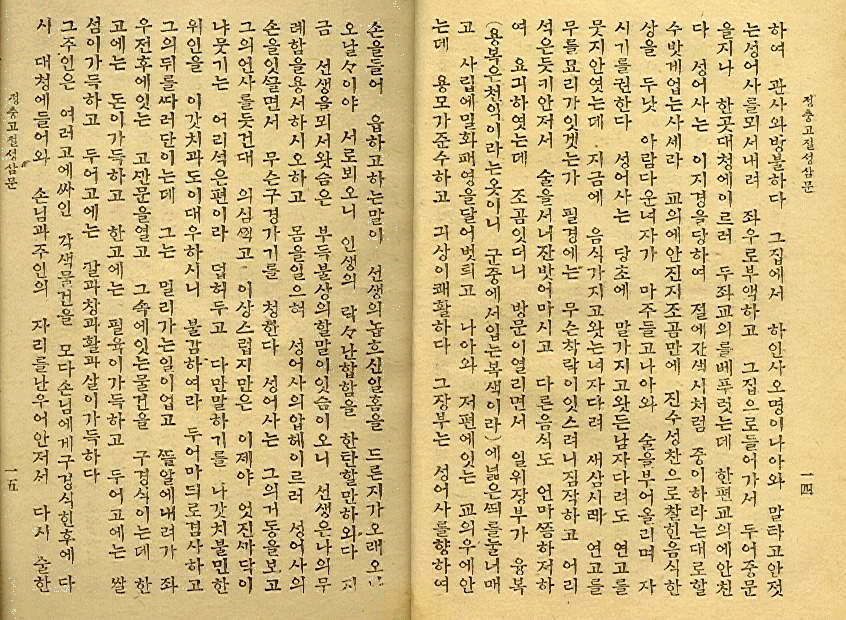 정충고절성삼문
一四
하여 관사와방불하다 그집에서 하인사오명이나아와 말타고앉젓
는성어사를뫼서내려 좌우로부액하고 그집으로들어가서 두어중문
을지나 한곳대청에이르러 두좌교의를베푸럿는데 한편교의에안친
다 성어사는 이지경을당하여 절에간색시처럼 중이하라는대로할
수밧게업는사세라 교의에안진지조곰만에 진수성찬으로찰힌음식한
상을 두낫 아람다운녀자가 마주들고나아와 술을부어올리며 자
시기를권한다 성어사는 당초에 말가지고왓든남자다려도 연고를
뭇지안엇는데 지금에 음식가지고와는녀자다려 새삼시레 연고를
무를묘리가잇겟는가 필경에는 무슨착락이잇스려니짐작하고 어리
석은듯키안저서 술을서너잔밧어마시고 다른음식도 언마쯤하저하
여 요긔하엿는데 조곰잇더니 방문이열리면서 일위장부가 융복
(융복은천익이라는옷이니 군중에서입는복색이라)에넓은띄를눌너매
고 사립에밀화패영을달어벗긔고 나아와 저편에잇는 교의우에안
는데 용모가준수하고 긔상이쾌활하다 그장부는 성어사를향하여
손을들어 읍하고하는말이 선생의놉흐신일홈을 드른지가오래오니
오날々이야 서로뵈오니 인생의 락々난합함을 한탄할만하외다 지
금 선생을뫼서왓슴은 부득불상의할말이잇슴이오니 선생은나의무
례함을용서하시오하고 몸을일으혀 성어사의압헤이르러 성어사의
손을잇끌면서 무슨구경가기를 청한다 성어사는 그의거동을보고
그의언사를듯건대 의심쩍고 이상스럽지만은 이제야 엇진까닥이
냐뭇기는 어리석은편이라 덥허두고 다만말하기를 나갓치불민한
위인을 이갓치과도이대우하시니 불감하여라 두어마듸로겸사하고
그의뒤를따러단이는데 그는 멀리가는일이업고 뜰알에내려가 좌
우전후에잇는 고깐문을열고 그속에잇는물건을 구경식이는데 한
고에는 돈이가득하고 한고에는 필육이가득하고 두어고에는 쌀
섬이가득하고 두어고에는 칼과창과활과살이가득하다
그주인은 여러고에싸인 각색물건을 모다손님에게구경식힌후에 다
시 대청에들어와 손님과주인의 자리를난우어안저서 다시 술한
정충고절성삼문
一五